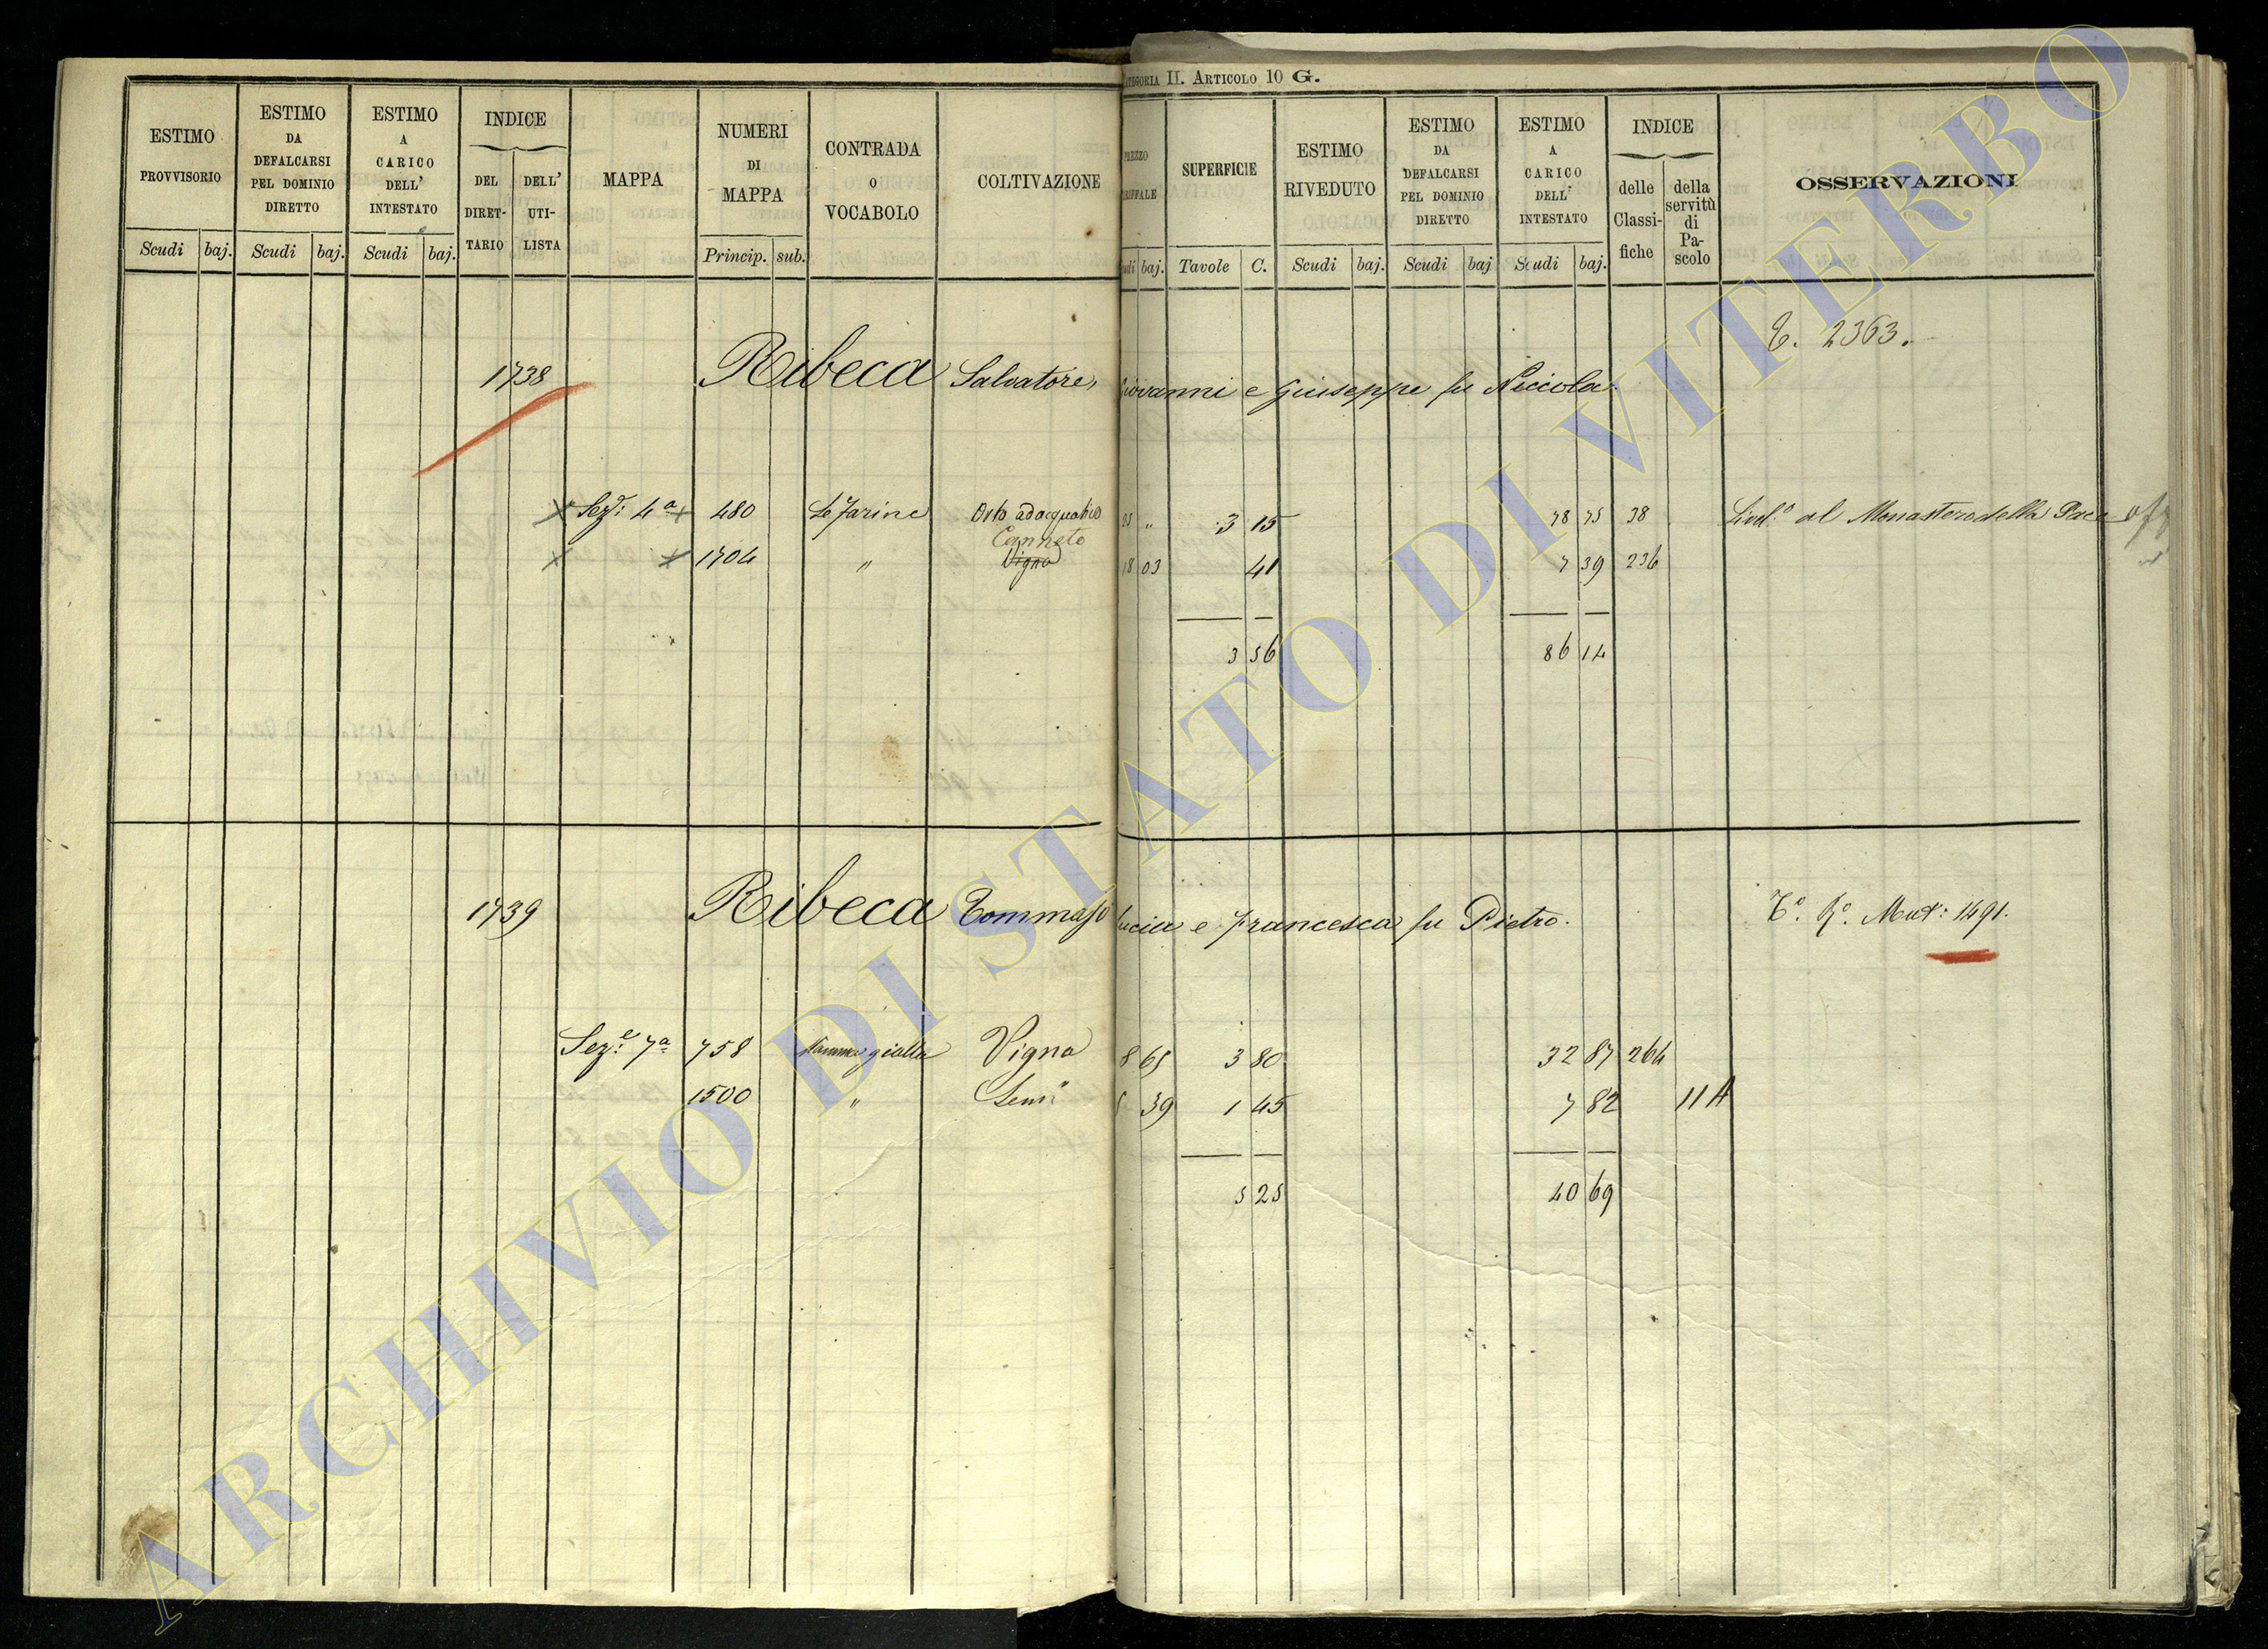 CATEGORIA II. ARTICOLO 10 G.
ESTIMO PROVVISORIO
ESTIMO DA DEFALCARSI PEL DOMINIO DIRETTO
ESTIMO A CARICO DELL' INTESTATO
INDICE
DEL DIRETTARIO
DELL' UTILISTA
MAPPA
NUMERI DI MAPPA
CONTRADA O VOCABOLO
COLTIVAZIONE
SUPERFICIE
ESTIMO RIVEDUTO
ESTIMO DA DEFALCARSI PEL DOMINIO DIRETTO
ESTIMO A CARICO DELL' INTESTATO
INDICE
delle Classifiche
della servitù di Pascolo
OSSERVAZIONI
Scudi baj. Scudi baj. Scudi baj. Princip. sub. baj. Tavole C. Scudi baj. Scudi baj Scudi baj.
T. 2363.
1738 Ribeca Salvatore, Giovanni e Giuseppe fu Niccola.
Sezᵉ: 4ª 480 Le Farine Orto adacquativo 25 „ 3 15 78 75 38 Livelº al Monastero della Pace
Canneto
1704 „ Vigna 18 03 41 7 39 236
3 56 86 14
1739 Ribeca Tommaso Lucia e Francesca fu Pietro. Tº. Rº. Mutˣ: 1491.
Sezᵉ: 7ª 758 Mamma gialla Vigna 8 65 3 80 32 87 264
1500 „ Semˡᵒ 5 39 1 45 7 82 11 A
5 25 40 69
ARCHIVIO DI STATO DI VITERBO